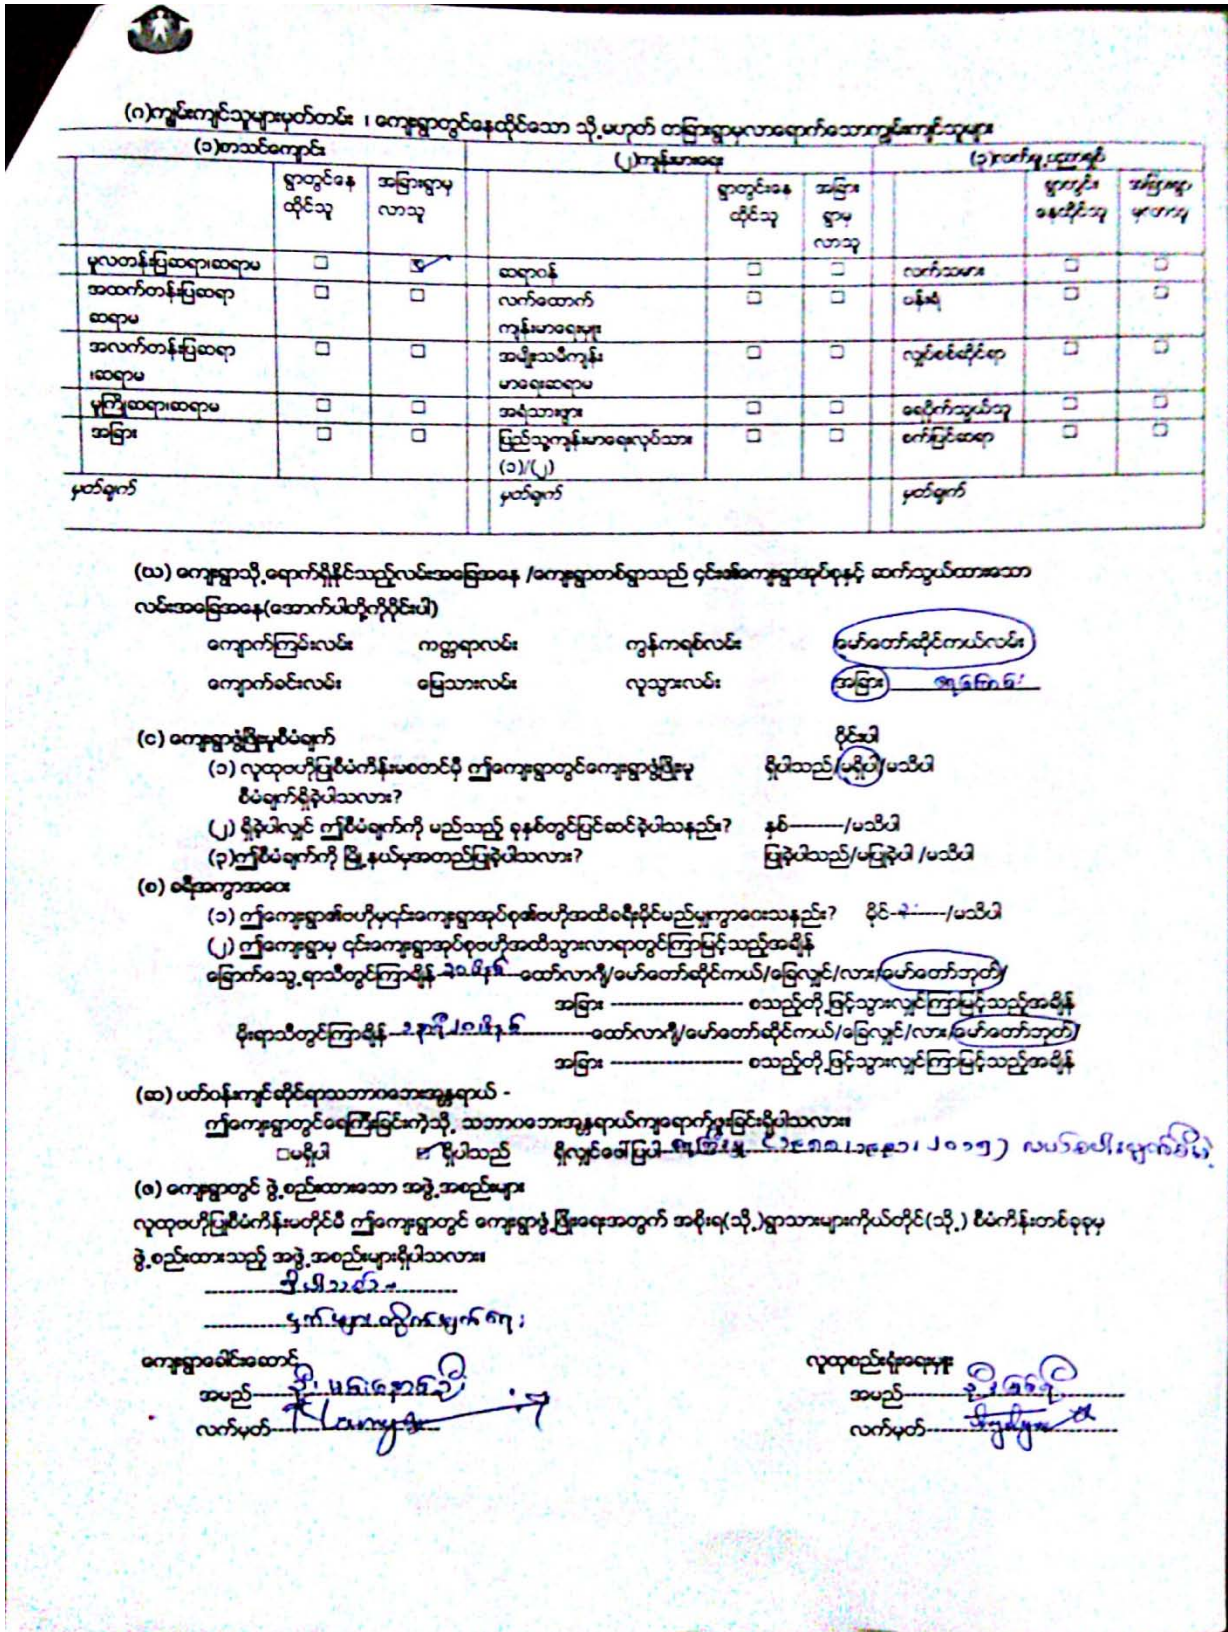 (ဂ)ကျွမ်းကျင်သူများမှတ်တမ်း ၊ ကျေးရွာတွင်နေထိုင်သော သို့မဟုတ် တခြားရွာမှလာရောက်သောကျွမ်းကျင်သူများ
(၁)စာသင်ကျောင်း (၂)ကျန်းမာရေး (၃)လက်မှု ပညာရှင်
ရွာတွင်နေထိုင်သူ အခြားရွာမှလာသူ ရွာတွင်းနေထိုင်သူ အခြားရွာမှလာသူ ရွာတွင်းနေထိုင်သူ အခြားရွာမှလာသူ
မူလတန်းပြဆရာ၊ဆရာမ □ ☑ ဆရာဝန် □ □ လက်သမား □ □
အထက်တန်းပြဆရာ ဆရာမ □ □ လက်ထောက် ကျန်းမာရေးမှူး □ □ ပန်းရံ □ □
အလက်တန်းပြဆရာ ၊ဆရာမ □ □ အမျိုးသမီကျန်း မာရေးဆရာမ □ □ လျှပ်စစ်ဆိုင်ရာ □ □
မူကြိုဆရာ၊ဆရာမ □ □ အရံသားဖွား □ □ ရေပိုက်သွယ်သူ □ □
အခြား □ □ ပြည်သူ့ကျန်းမာရေးလုပ်သား (၁)/(၂) □ □ စက်ပြင်ဆရာ □ □
မှတ်ချက် မှတ်ချက် မှတ်ချက်
(ဃ) ကျေးရွာသို့ရောက်ရှိနိုင်သည့်လမ်းအခြေအနေ /ကျေးရွာတစ်ရွာသည် ၄င်း၏ကျေးရွာအုပ်စုနှင့် ဆက်သွယ်ထားသော
လမ်းအခြေအနေ(အောက်ပါတို့ကိုဝိုင်းပါ)
ကျောက်ကြမ်းလမ်း ကတ္တရာလမ်း ကွန်ကရစ်လမ်း မော်တော်ဆိုင်ကယ်လမ်း
ကျောက်ခင်းလမ်း မြေသားလမ်း လူသွားလမ်း အခြား ရေကြောင်း
(င) ကျေးရွာဖွံ့ဖြိုးမှုစီမံချက် ဝိုင်းပါ
(၁) လူထုဗဟိုပြုစီမံကိန်းမစတင်မှီ ဤကျေးရွာတွင်ကျေးရွာဖွံ့ဖြိုးမှု ရှိပါသည်/မရှိပါ/မသိပါ
စီမံချက်ရှိခဲ့ပါသလား?
(၂) ရှိခဲ့ပါလျှင် ဤစီမံချက်ကို မည်သည့် ခုနှစ်တွင်ပြင်ဆင်ခဲ့ပါသနည်း? နှစ်--------/မသိပါ
(၃)ဤစီမံချက်ကို မြို့နယ်မှအတည်ပြုခဲ့ပါသလား? ပြုခဲ့ပါသည်/မပြုခဲ့ပါ /မသိပါ
(စ) ခရီးအကွာအဝေး
(၁) ဤကျေးရွာ၏ဗဟိုမှ၎င်းကျေးရွာအုပ်စု၏ဗဟိုအထိခရီးမိုင်မည်မျှကွာဝေးသနည်း? မိုင်--------/မသိပါ
(၂) ဤကျေးရွာမှ ၎င်းကျေးရွာအုပ်စုဗဟိုအထိသွားလာရာတွင်ကြာမြင့်သည့်အချိန်
ခြောက်သွေ့ရာသီတွင်ကြာချိန် ၃၀ မိနစ် ထော်လာဂျီ/မော်တော်ဆိုင်ကယ်/ခြေလျှင်/လား/မော်တော်ဘုတ်/
အခြား -------------------- စသည့်တို့ဖြင့်သွားလျှင်ကြာမြင့်သည့်အချိန်
မိုးရာသီတွင်ကြာချိန် ၁ နာရီ ၂၀ မိနစ် ထော်လာဂျီ/မော်တော်ဆိုင်ကယ်/ခြေလျှင်/လား/မော်တော်ဘုတ်/
အခြား -------------------- စသည့်တို့ဖြင့်သွားလျှင်ကြာမြင့်သည့်အချိန်
(ဆ) ပတ်ဝန်းကျင်ဆိုင်ရာသဘာဝဘေးအန္တရာယ် -
ဤကျေးရွာတွင်ရေကြီးခြင်းကဲ့သို့ သဘာဝဘေးအန္တရာယ်ကျရောက်ဖူးခြင်းရှိပါသလား။
□မရှိပါ ☑ ရှိပါသည် ရှိလျှင်ဖေါ်ပြပါ ၂၀၁၅) လယ်စပါးပျက်စီးခဲ့
(ဇ) ကျေးရွာတွင် ဖွဲ့စည်းထားသော အဖွဲ့အစည်းများ
လူထုဗဟိုပြုစီမံကိန်းမတိုင်မီ ဤကျေးရွာတွင် ကျေးရွာဖွံ့ဖြိုးရေးအတွက် အစိုးရ(သို့)ရွာသားများကိုယ်တိုင်(သို့) စီမံကိန်းတစ်ခုခုမှ
ဖွဲ့စည်းထားသည့် အဖွဲ့အစည်းများရှိပါသလား။
ရှိပါသည်-
ငှက်ဖျားတိုက်ဖျက်ရေး
ကျေးရွာခေါင်းဆောင် လူထုစည်းရုံးရေးမှူး
အမည် အမည်
လက်မှတ် လက်မှတ်